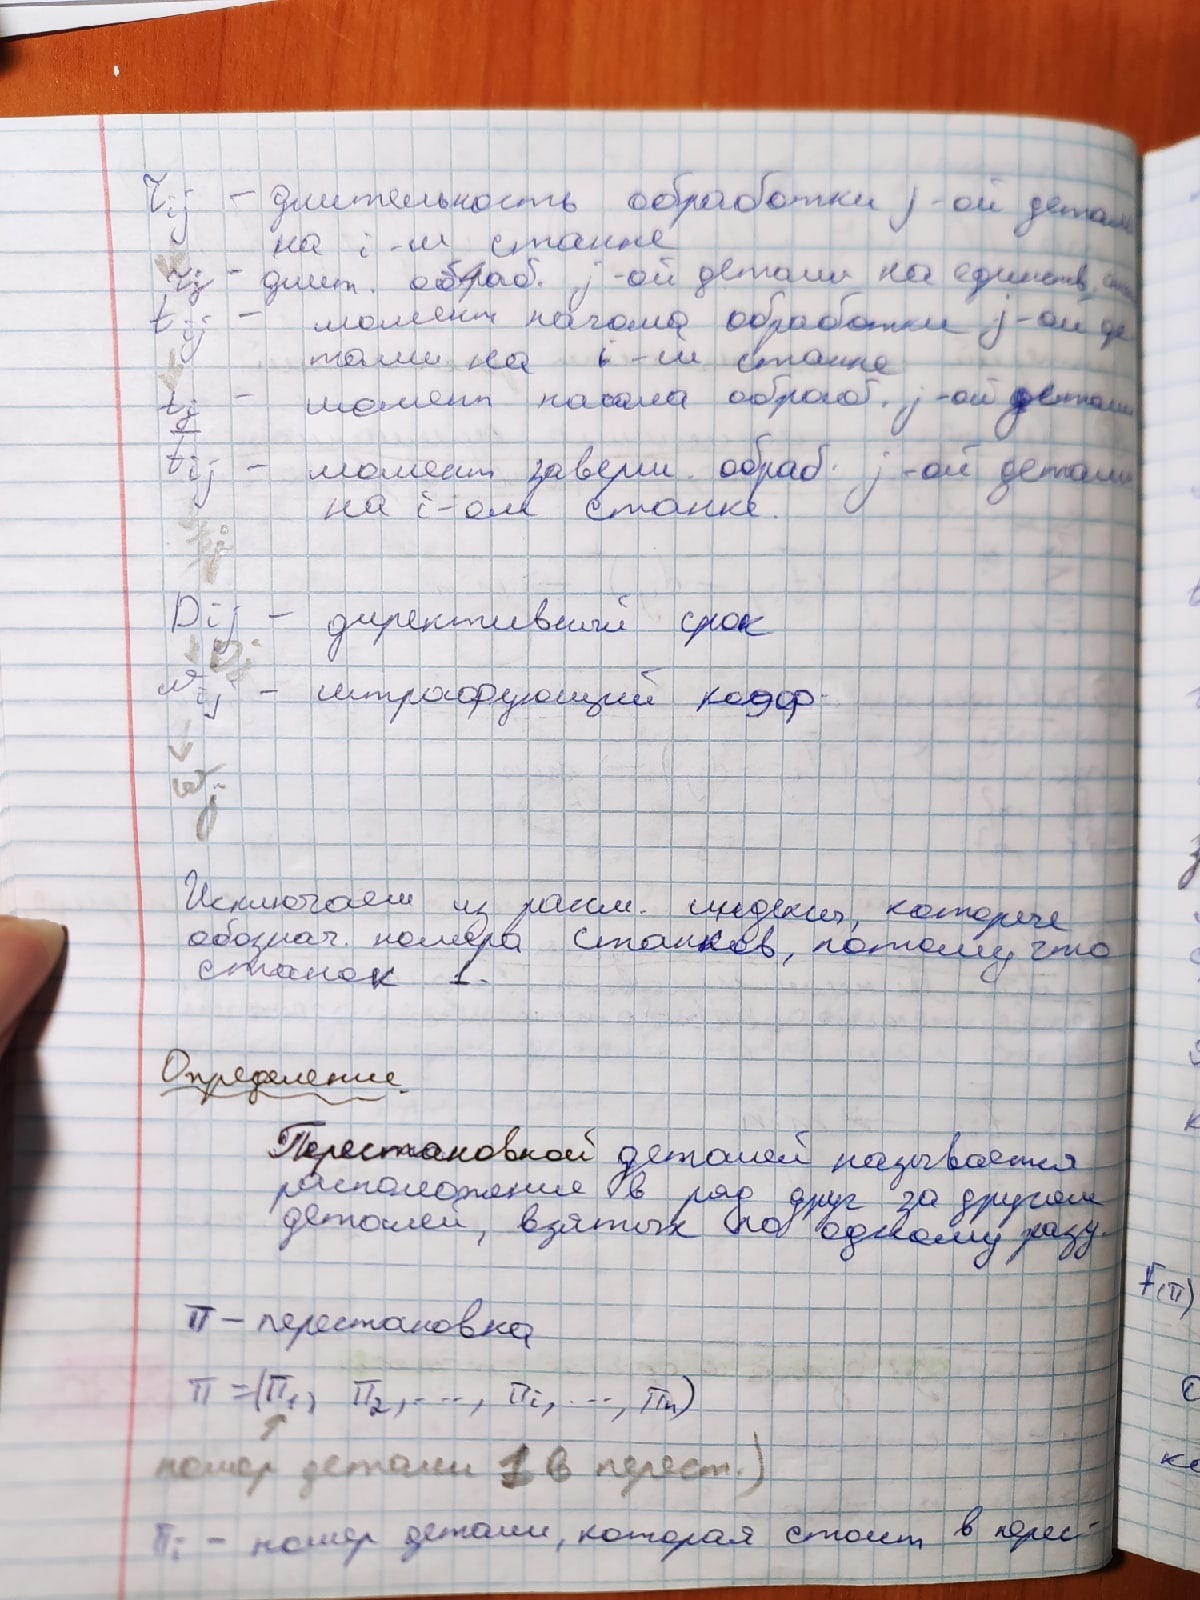 τij – длительность обработки j-ой детали
на i-м станке
τj – длит. обраб. j-ой детали на единств.
tij – момент начала обработки j-ой де
тали на i-м станке
tj – момент начала обраб. j-ой детали
t̄ij – момент заверш. обраб. j-ой детали
на i-ом станке.
Dij – директивный срок
Dj
wij – штрафующий коэф.
wj
Исключаем из рассм. индексы, которые
обознач. номера станков, потому что
станок 1.
Определение.
Перестановкой деталей называется
расположение в ряд друг за другом
деталей, взятых по одному разу.
π – перестановка
π = (π1, π2, ..., πi, ..., πn)
номер детали 1 в перест.)
πi – номер детали, которая стоит в перес-
F(π)